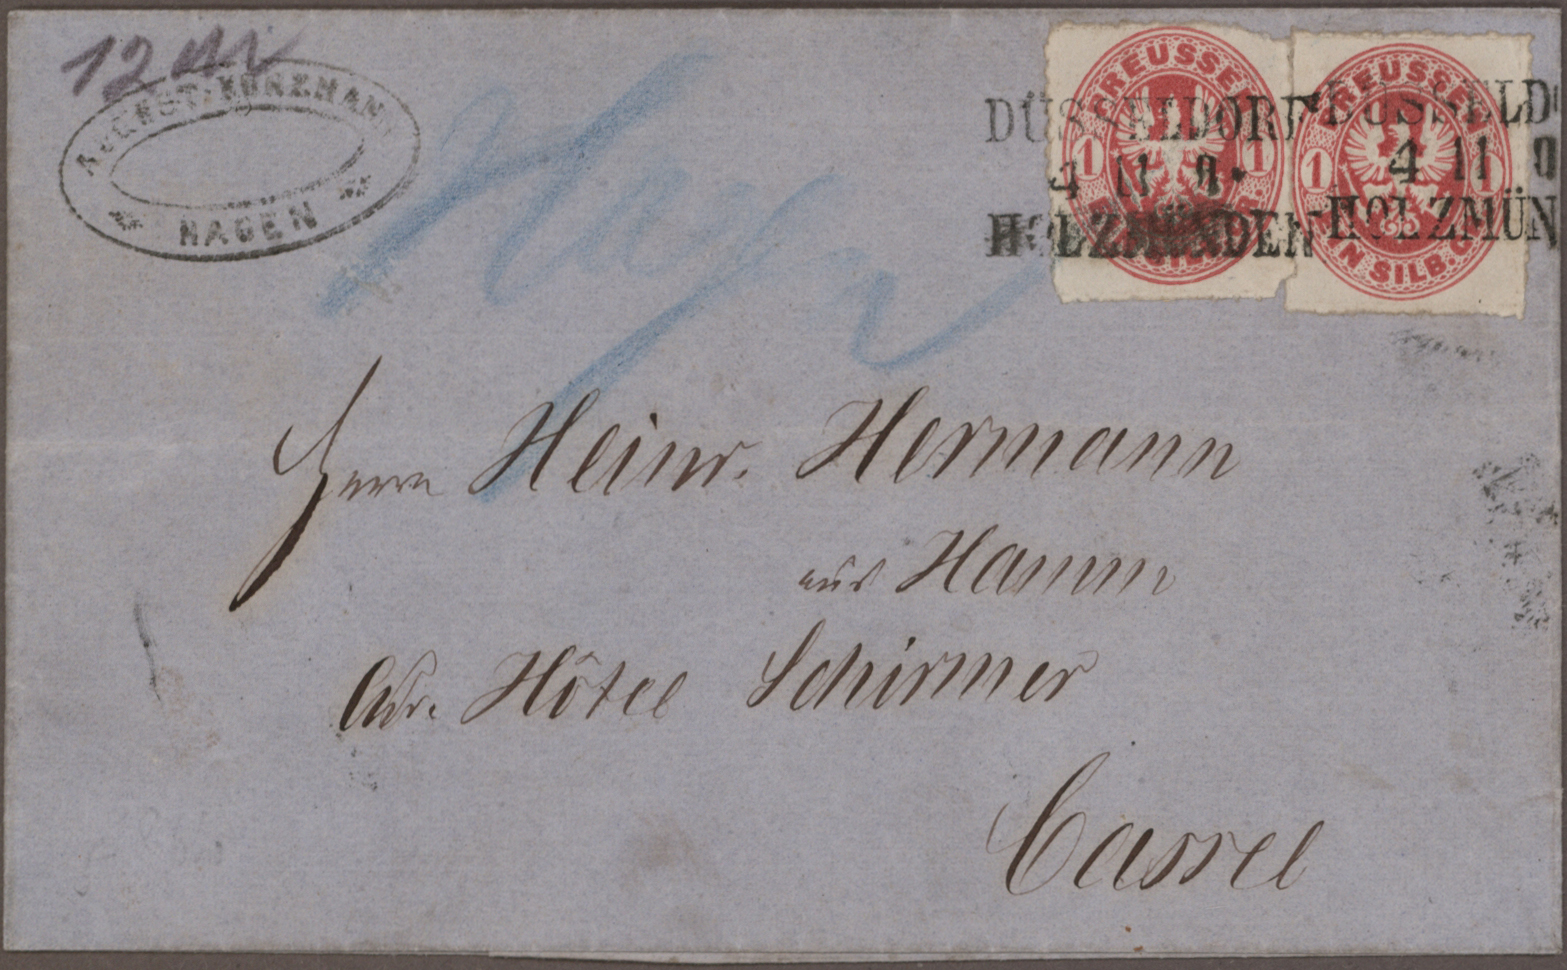 12 M
AUGUST KÜRZMANN
HAGEN
Hagen
PREUSSEN
1 1
EIN SILB. GR.
PREUSSEN
1 1
EIN SILB. GR.
DÜSSELDORF
4 11
HOLZMÜNDEN
DÜSSELDO
4 11
HOLZMÜN
Herrn Heinr. Hermann
aus Hamm
Adr. Hôtel Schirmer
Cassel